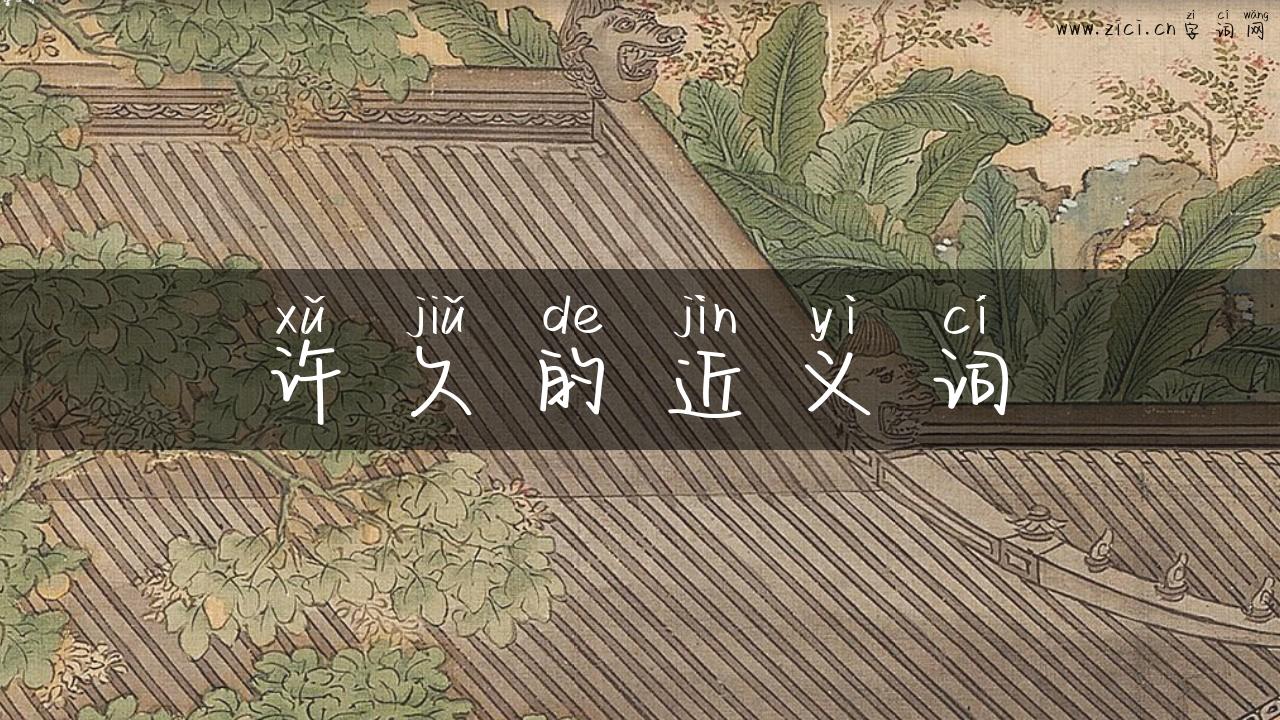 zì cí wǎng
www.zici.cn 字词网
xǔ jiǔ de jìn yì cí
许久的近义词